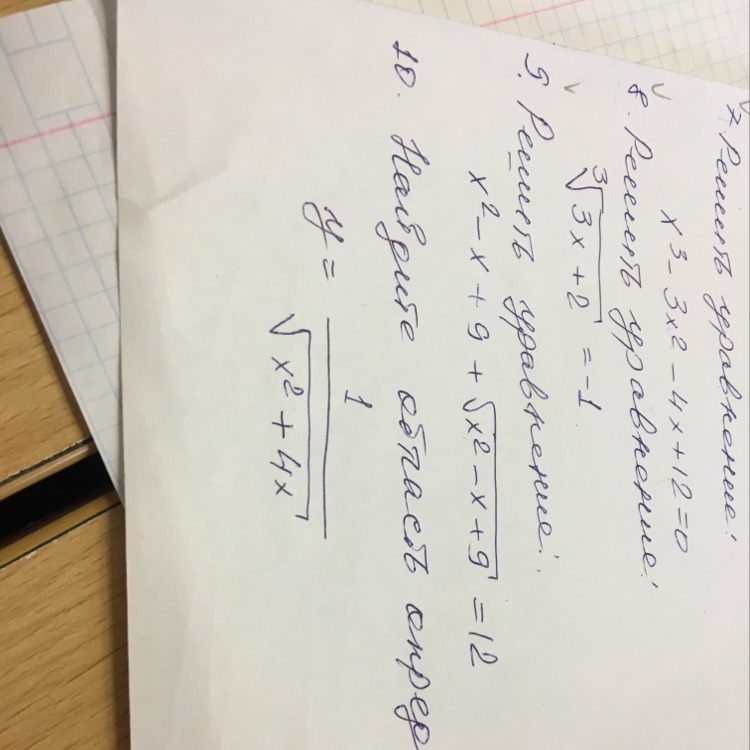 7. Решить уравнение:
x³ - 3x² - 4x + 12 = 0
8. Решить уравнение:
∛(3x + 2) = -1
9. Решить уравнение:
x² - x + 9 + √(x² - x + 9) = 12
10. Найдите область опред
y = 1/√(x² + 4x)